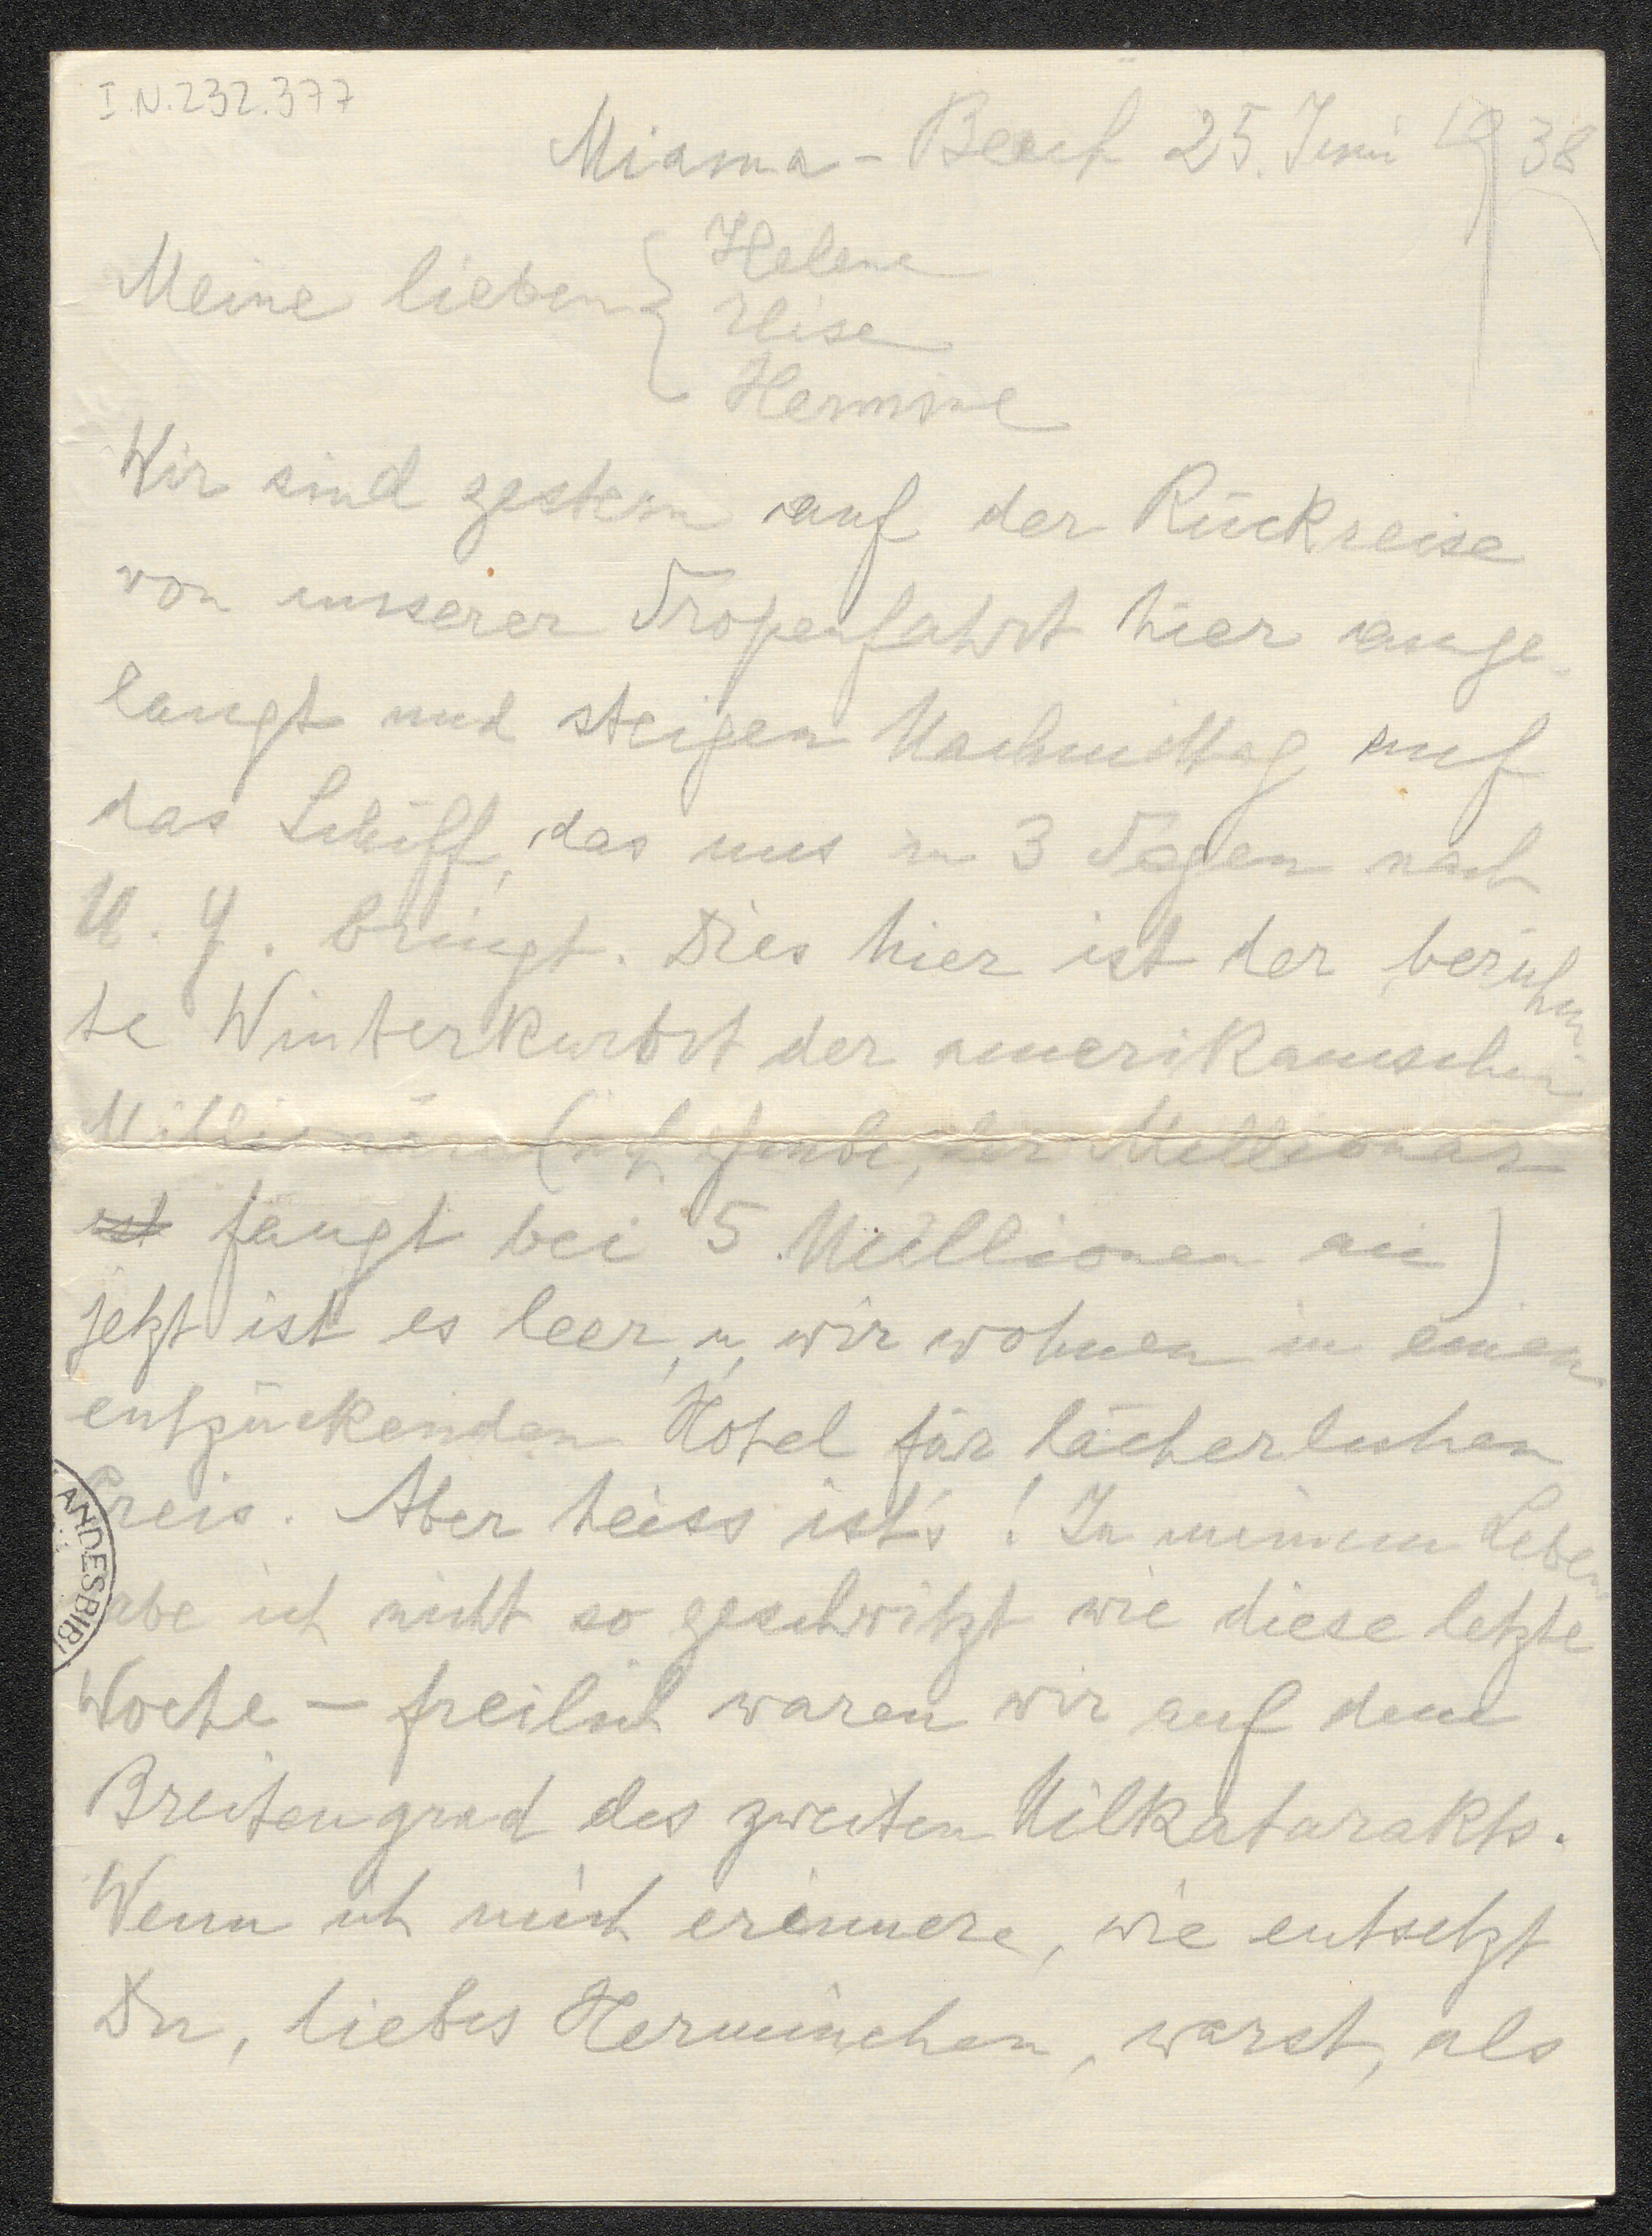 I.N.232.377
Miama - Beach 25. Juni 1938
Helene
Meine lieben { Elise
Hermine
Wir sind gestern auf der Rückreise
von unserer Tropenfahrt hier ange-
langt und steigen Nachmittag auf
das Schiff, das uns in 3 Tagen nach
N. Y. bringt. Dies hier ist der berühm-
te Winterkurort der amerikanischen
Millionäre (ich glaube, der Millionär
ist fängt bei 5 Millionen an)
jetzt ist es leer, u. wir wohnen in einem
entzückenden Hotel für lächerlichen
Preis. Aber heiss ist's! In meinem Leben
habe ich nicht so geschwitzt wie diese letzte
Woche – freilich waren wir auf dem
Breitengrad des zweiten Nilkatarakts.
Wenn ich mich erinnere, wie entsetzt
Du, liebes Herminchen, warst, als
ANDESBIBL